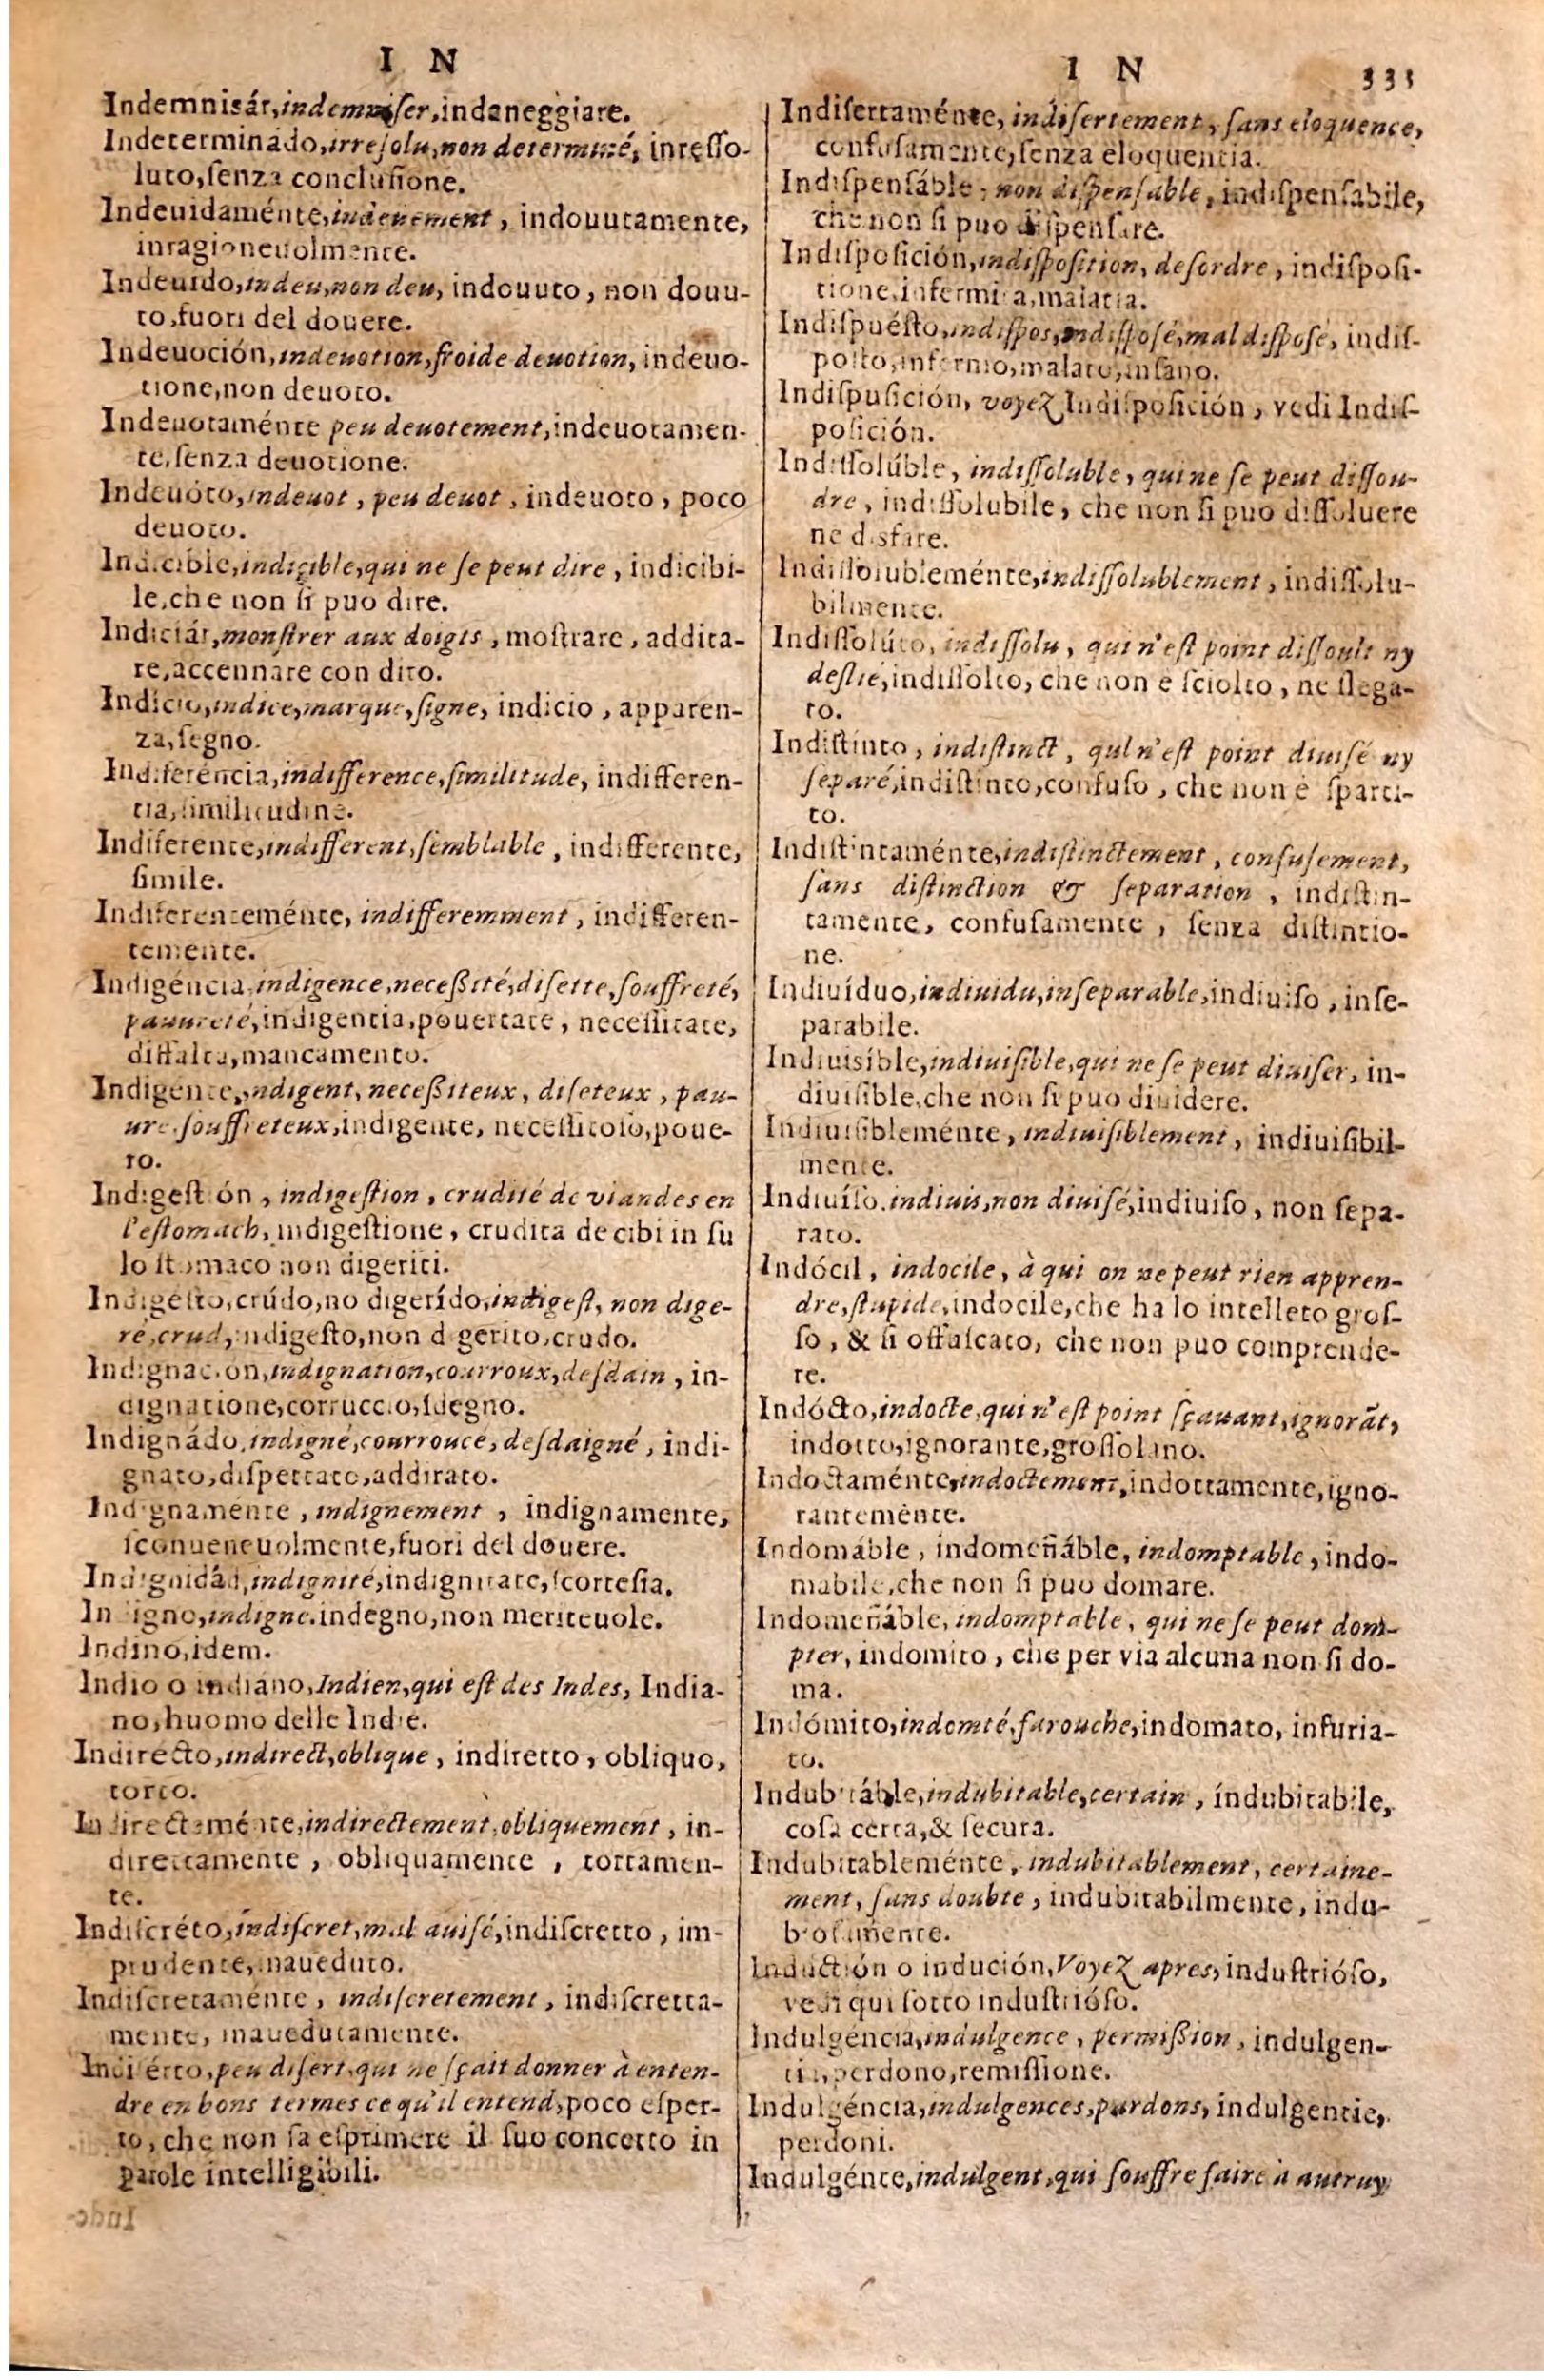 I N
Indemnisár, indemniser, indaneggiare.
Indeterminádo, irresolu, non determiné, inresso-
luto, senza conclusione.
Indeuidaménte, indeuement, indouutamente,
inragioneuolmente.
Indeuido, indeu, non deu, indouuto, non douu-
to, fuori del douere.
Indeuoción, indeuotion, froide deuotion, indeuo-
tione, non deuoto.
Indeuotaménte peu deuotement, indeuotamen-
te, senza deuotione.
Indeuóto, indeuot, peu deuot, indeuoto, poco
deuoto.
Indicible, indicible, qui ne se peut dire, indicibi-
le, che non si puo dire.
Indiciár, monstrer aux doigts, mostrare, addita-
re, accennare con dito.
Indício, indice, marque, signe, indicio, apparen-
za, segno.
Indiferéncia, indifference, similitude, indifferen-
tia, similitudine.
Indiferente, indifferent, semblable, indifferente,
simile.
Indiferenteménte, indifferemment, indifferen-
temente.
Indigéncia, indigence, neceßité, disette, souffreté,
pauureté, indigentia, pouertate, necessitate,
diffalta, mancamento.
Indigente, indigent, neceßiteux, diseteux, pau-
ure, souffreteux, indigente, necessitoso, poue-
ro.
Indigestión, indigestion, crudité de viandes en
l'estomach, indigestione, crudita de cibi in su
lo stomaco non digeriti.
Indigésto, crúdo, no digerído, indigest, non dige-
ré, crud, indigesto, non digerito, crudo.
Indignacion, indignation, courroux, desdain, in-
dignatione, corruccio, sdegno.
Indignádo, indigné, courroucé, desdaigné, indi-
gnato, dispettato, addirato.
Indignamente, indignement, indignamente,
sconueneuolmente, fuori del douere.
Indignidád, indignité, indignitate, scortesia.
Indigno, indigne. indegno, non meriteuole.
Indino, idem.
Indio o indiano, Indien, qui est des Indes, India-
no, huomo delle Indie.
Indirecto, indirect, oblique, indiretto, obliquo,
torto.
Indirectaménte, indirectement, obliquement, in-
direttamente, obliquamente, tortamen-
te.
Indiscréto, indiscret, mal auisé, indiscretto, im-
prudente, inaueduto.
Indiscretaménte, indiscretement, indiscretta-
mente, inauedutamente.
Indisérto, peu disert, qui ne sçait donner à enten-
dre en bons termes ce qu'il entend, poco esper-
to, che non sa esprimere il suo concetto in
parole intelligibili.
I N 335
Indisertaménte, indisertement, sans eloquence,
confusamente, senza eloquentia.
Indispensáble, non dispensable, indispensabile,
che non si puo dispensare.
Indisposición, indisposition, desordre, indisposi-
tione, infermita, malatia.
Indispuésto, indispos, indisposé, mal disposé, indis-
posto, infermo, malato, insano.
Indispusición, voyez Indisposición, vedi Indis-
posición.
Indissolúble, indissoluble, qui ne se peut dissou-
dre, indissolubile, che non si puo dissoluere
ne disfare.
Indissolubleménte, indissolublement, indissolu-
bilmente.
Indissolúto, indissolu, qui n'est point dissoult ny
deslié, indissolto, che non e sciolto, ne slega-
to.
Indistínto, indistinct, qui n'est point diuisé ny
separé, indistinto, confuso, che non è sparti-
to.
Indistintaménte, indistinctement, confusement,
sans distinction & separation, indistin-
tamente, confusamente, senza distintio-
ne.
Indiuíduo, indiuidu, inseparable, indiuiso, inse-
parabile.
Indiuisíble, indiuisible, qui ne se peut diuiser, in-
diuisible, che non si puo diuidere.
Indiuisibleménte, indiuisiblement, indiuisibil-
mente.
Indiuíso, indiuis, non diuisé, indiuiso, non sepa-
rato.
Indócil, indocile, à qui on ne peut rien appren-
dre, stupide, indocile, che ha lo intelleto gros-
so, & si offuscato, che non puo comprende-
re.
Indócto, indocte, qui n'est point sçauant, ignorãt,
indotto, ignorante, grossolano.
Indoctaménte, indoctement, indottamente, igno-
rantemènte.
Indomáble, indomeñáble, indomptable, indo-
mabile, che non si puo domare.
Indomeñáble, indomptable, qui ne se peut dom-
pter, indomito, che per via alcuna non si do-
ma.
Indómito, indomté, farouche, indomato, infuria-
to.
Indubitáble, indubitable, certain, indubitabile,
cosa certa, & secura.
Indubitableménte, indubitablement, certaine-
ment, sans doubte, indubitabilmente, indu-
biosamente.
Inductión o indución, Voyez apres, industrióso,
vedi qui sotto industrióso.
Indulgéncia, indulgence, permißion, indulgen-
tia, perdono, remissione.
Indulgéncia, indulgences, pardons, indulgentie,
perdoni.
Indulgénte, indulgent, qui souffre faire à autruy